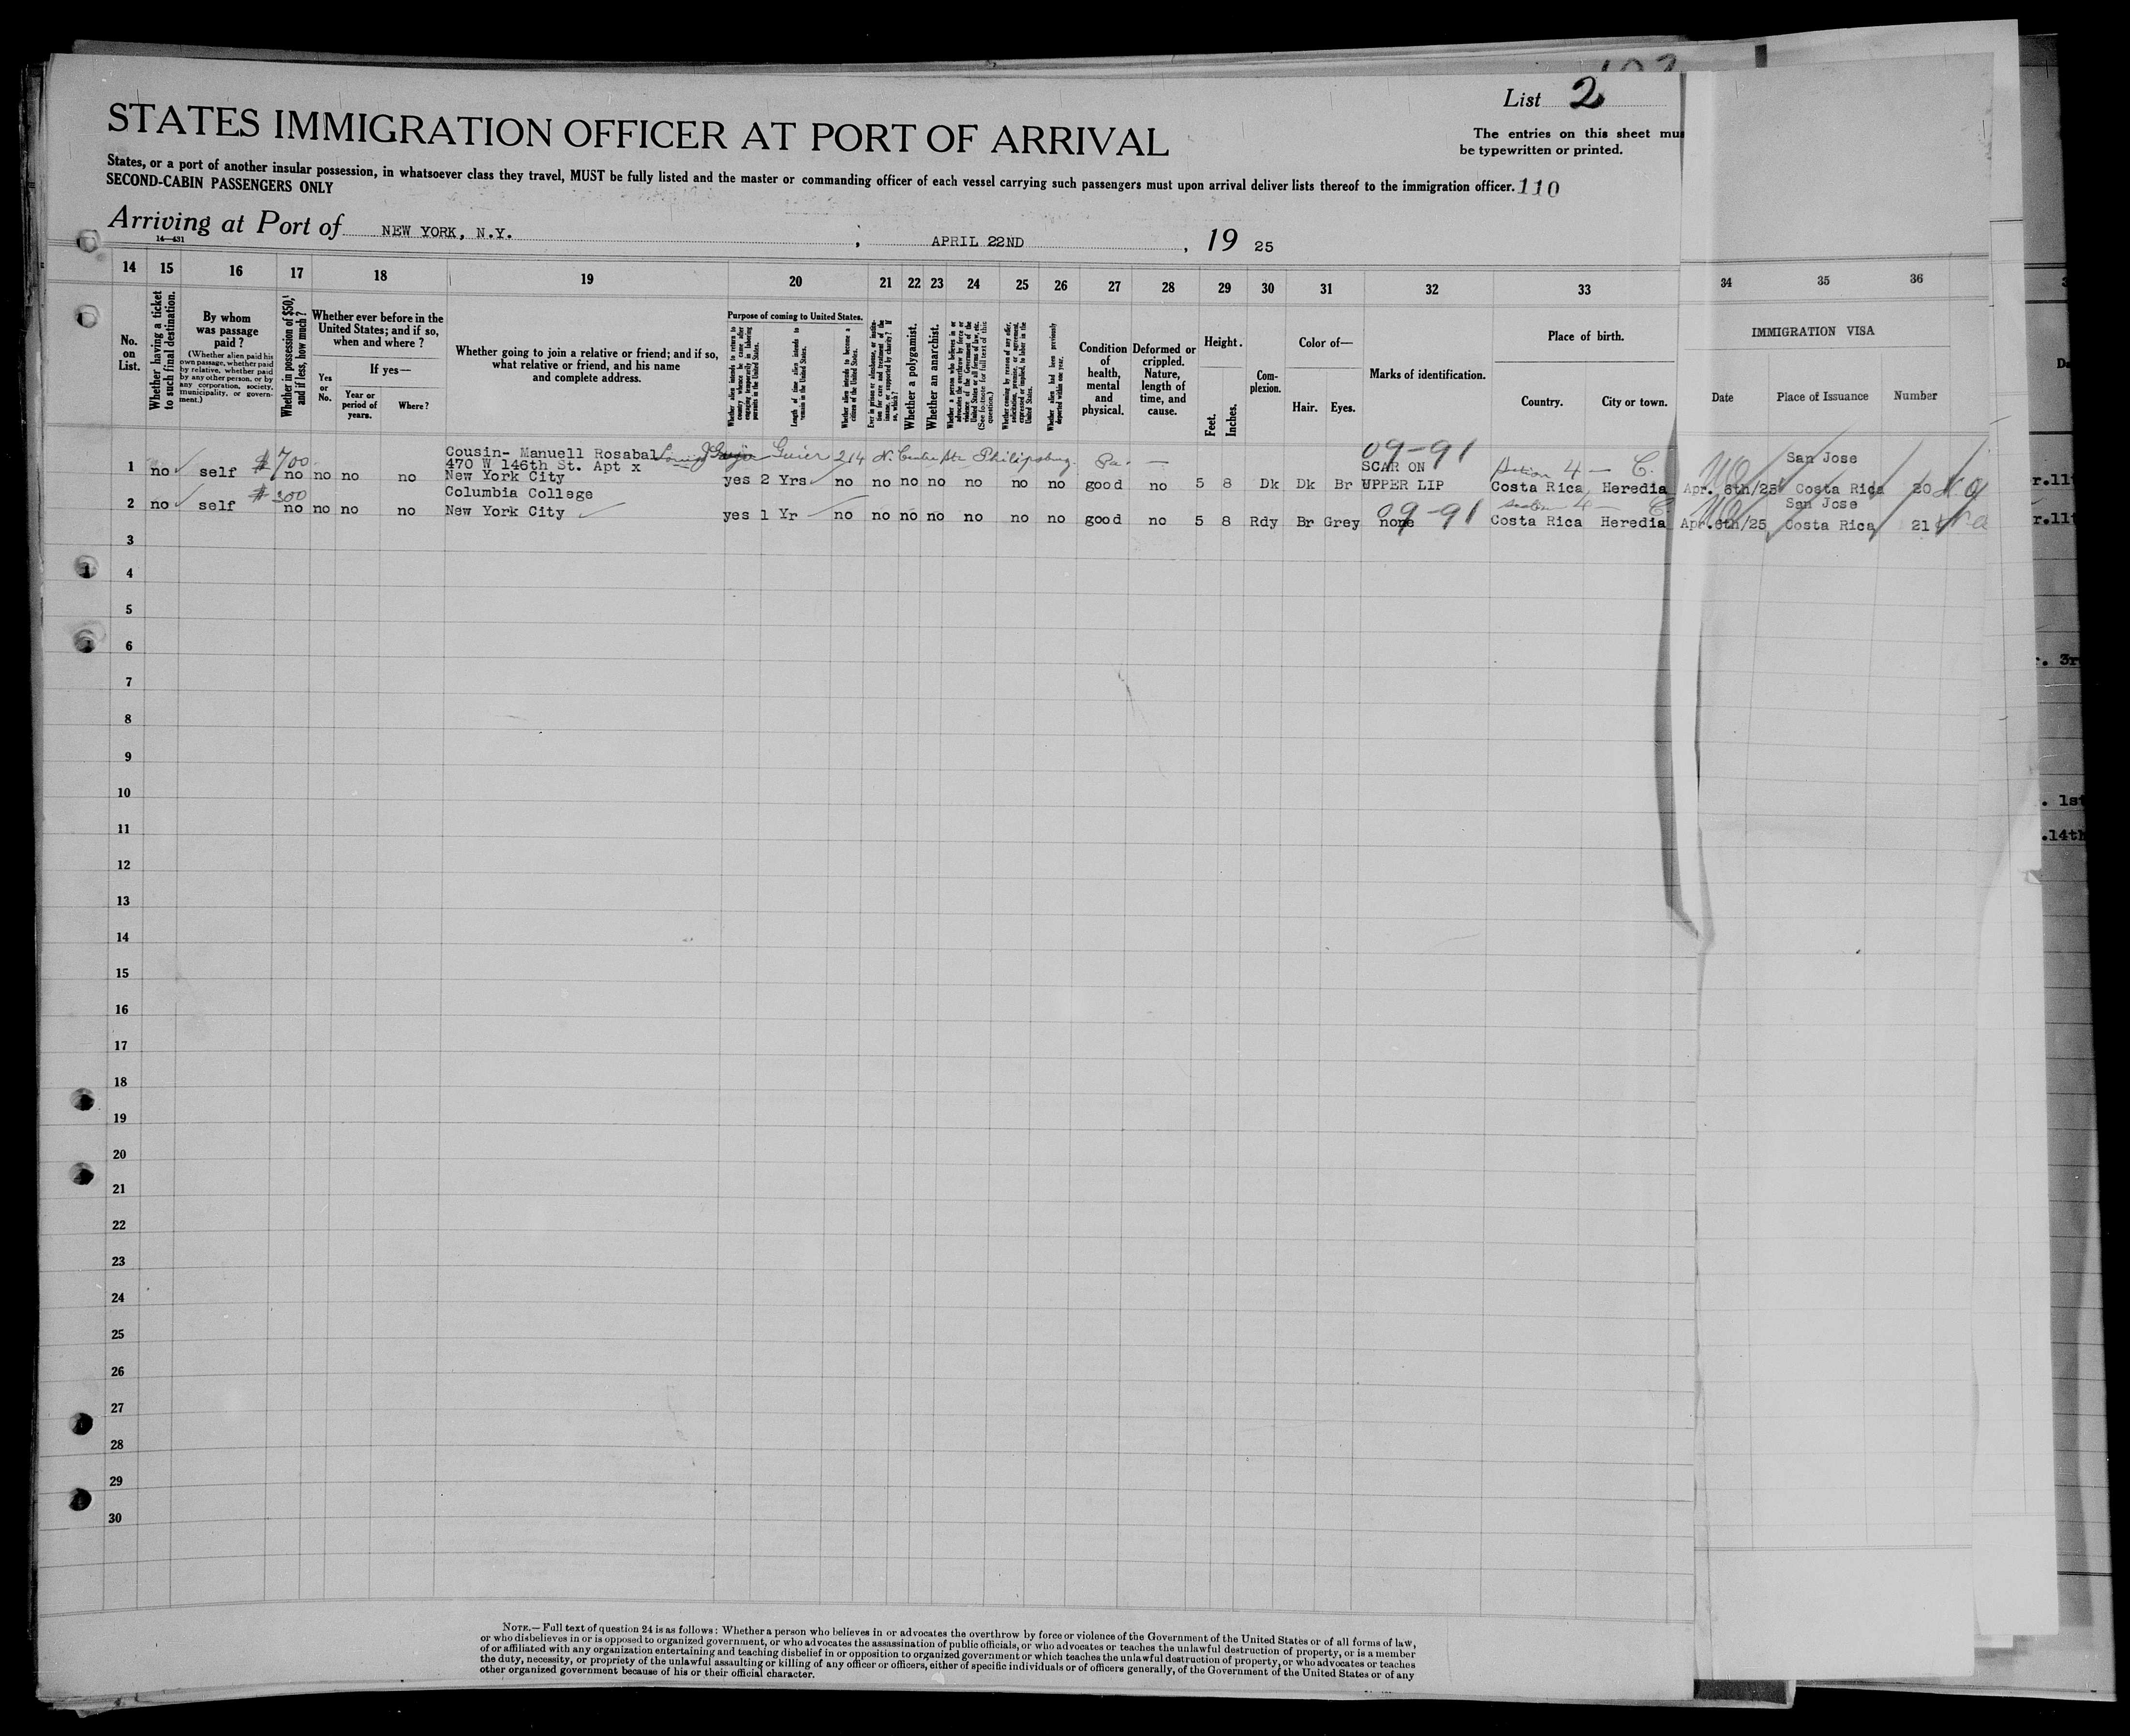 List 2
STATES IMMIGRATION OFFICER AT PORT OF ARRIVAL
The entries on this sheet mu
be typewritten or printed.
States, or a port of another insular possession, in whatsoever class they travel, MUST be fully listed and the master or commanding officer of each vessel carrying such passengers must upon arrival deliver lists thereof to the immigration officer. 110
SECOND-CABIN PASSENGERS ONLY
Arriving at Port of NEW YORK, N.Y. , APRIL 22ND , 19 25
14—431
14 15 16 17 18 19 20 21 22 23 24 25 26 27 28 29 30 31 32 33 34 35 36
No. on List.
Whether having a ticket to such final destination.
By whom was passage paid?
(Whether alien paid his own passage, whether paid by relative, whether paid by any other person, or by any corporation, society, municipality, or government.)
Whether in possession of $50, and if less, how much?
Whether ever before in the United States; and if so, when and where?
Yes or No.
If yes—
Year or period of years.
Where?
Whether going to join a relative or friend; and if so, what relative or friend, and his name and complete address.
Purpose of coming to United States.
Whether alien intends to return to country whence he came after engaging temporarily in laboring pursuits in the United States.
Length of time alien intends to remain in the United States.
Whether alien intends to become a citizen of the United States.
Ever in prison or almshouse, or institution for care and treatment of the insane, or supported by charity? If so, which?
Whether a polygamist.
Whether an anarchist.
Whether a person who believes in or advocates the overthrow by force or violence of the Government of the United States or all forms of law, etc. (See footnote for full text of this question.)
Whether coming by reason of any offer, solicitation, promise, or agreement, expressed or implied, to labor in the United States.
Whether alien had been previously deported within one year.
Condition of health, mental and physical.
Deformed or crippled. Nature, length of time, and cause.
Height.
Feet. Inches.
Complexion.
Color of—
Hair. Eyes.
Marks of identification.
Place of birth.
Country. City or town.
IMMIGRATION VISA
Date Place of Issuance Number
Cousin- Manuell Rosabal Guier 214 N. Centre Str Philipsburg. Pa. — 09-91 San Jose
470 W 146th St. Apt x SCAR ON 4 — C.
1 no self $700 no no no no New York City yes 2 Yrs no no no no no no no good no 5 8 Dk Dk Br UPPER LIP Costa Rica Heredia Apr. 6th/25 Costa Rica 20
Columbia College 09-91 Section 4 — C San Jose
2 no self $300 no no no no New York City yes 1 Yr no no no no no no no good no 5 8 Rdy Br Grey none Costa Rica Heredia Apr.6th/25 Costa Rica 21
3
4
5
6
7
8
9
10
11
12
13
14
15
16
17
18
19
20
21
22
23
24
25
26
27
28
29
30
r.11t
r.11t
. 3r
. 1st
.14th
NOTE.—Full text of question 24 is as follows: Whether a person who believes in or advocates the overthrow by force or violence of the Government of the United States or of all forms of law,
or who disbelieves in or is opposed to organized government, or who advocates the assassination of public officials, or who advocates or teaches the unlawful destruction of property, or is a member
of or affiliated with any organization entertaining and teaching disbelief in or opposition to organized government or which teaches the unlawful destruction of property, or who advocates or teaches
the duty, necessity, or propriety of the unlawful assaulting or killing of any officer or officers, either of specific individuals or of officers generally, of the Government of the United States or of any
other organized government because of his or their official character.